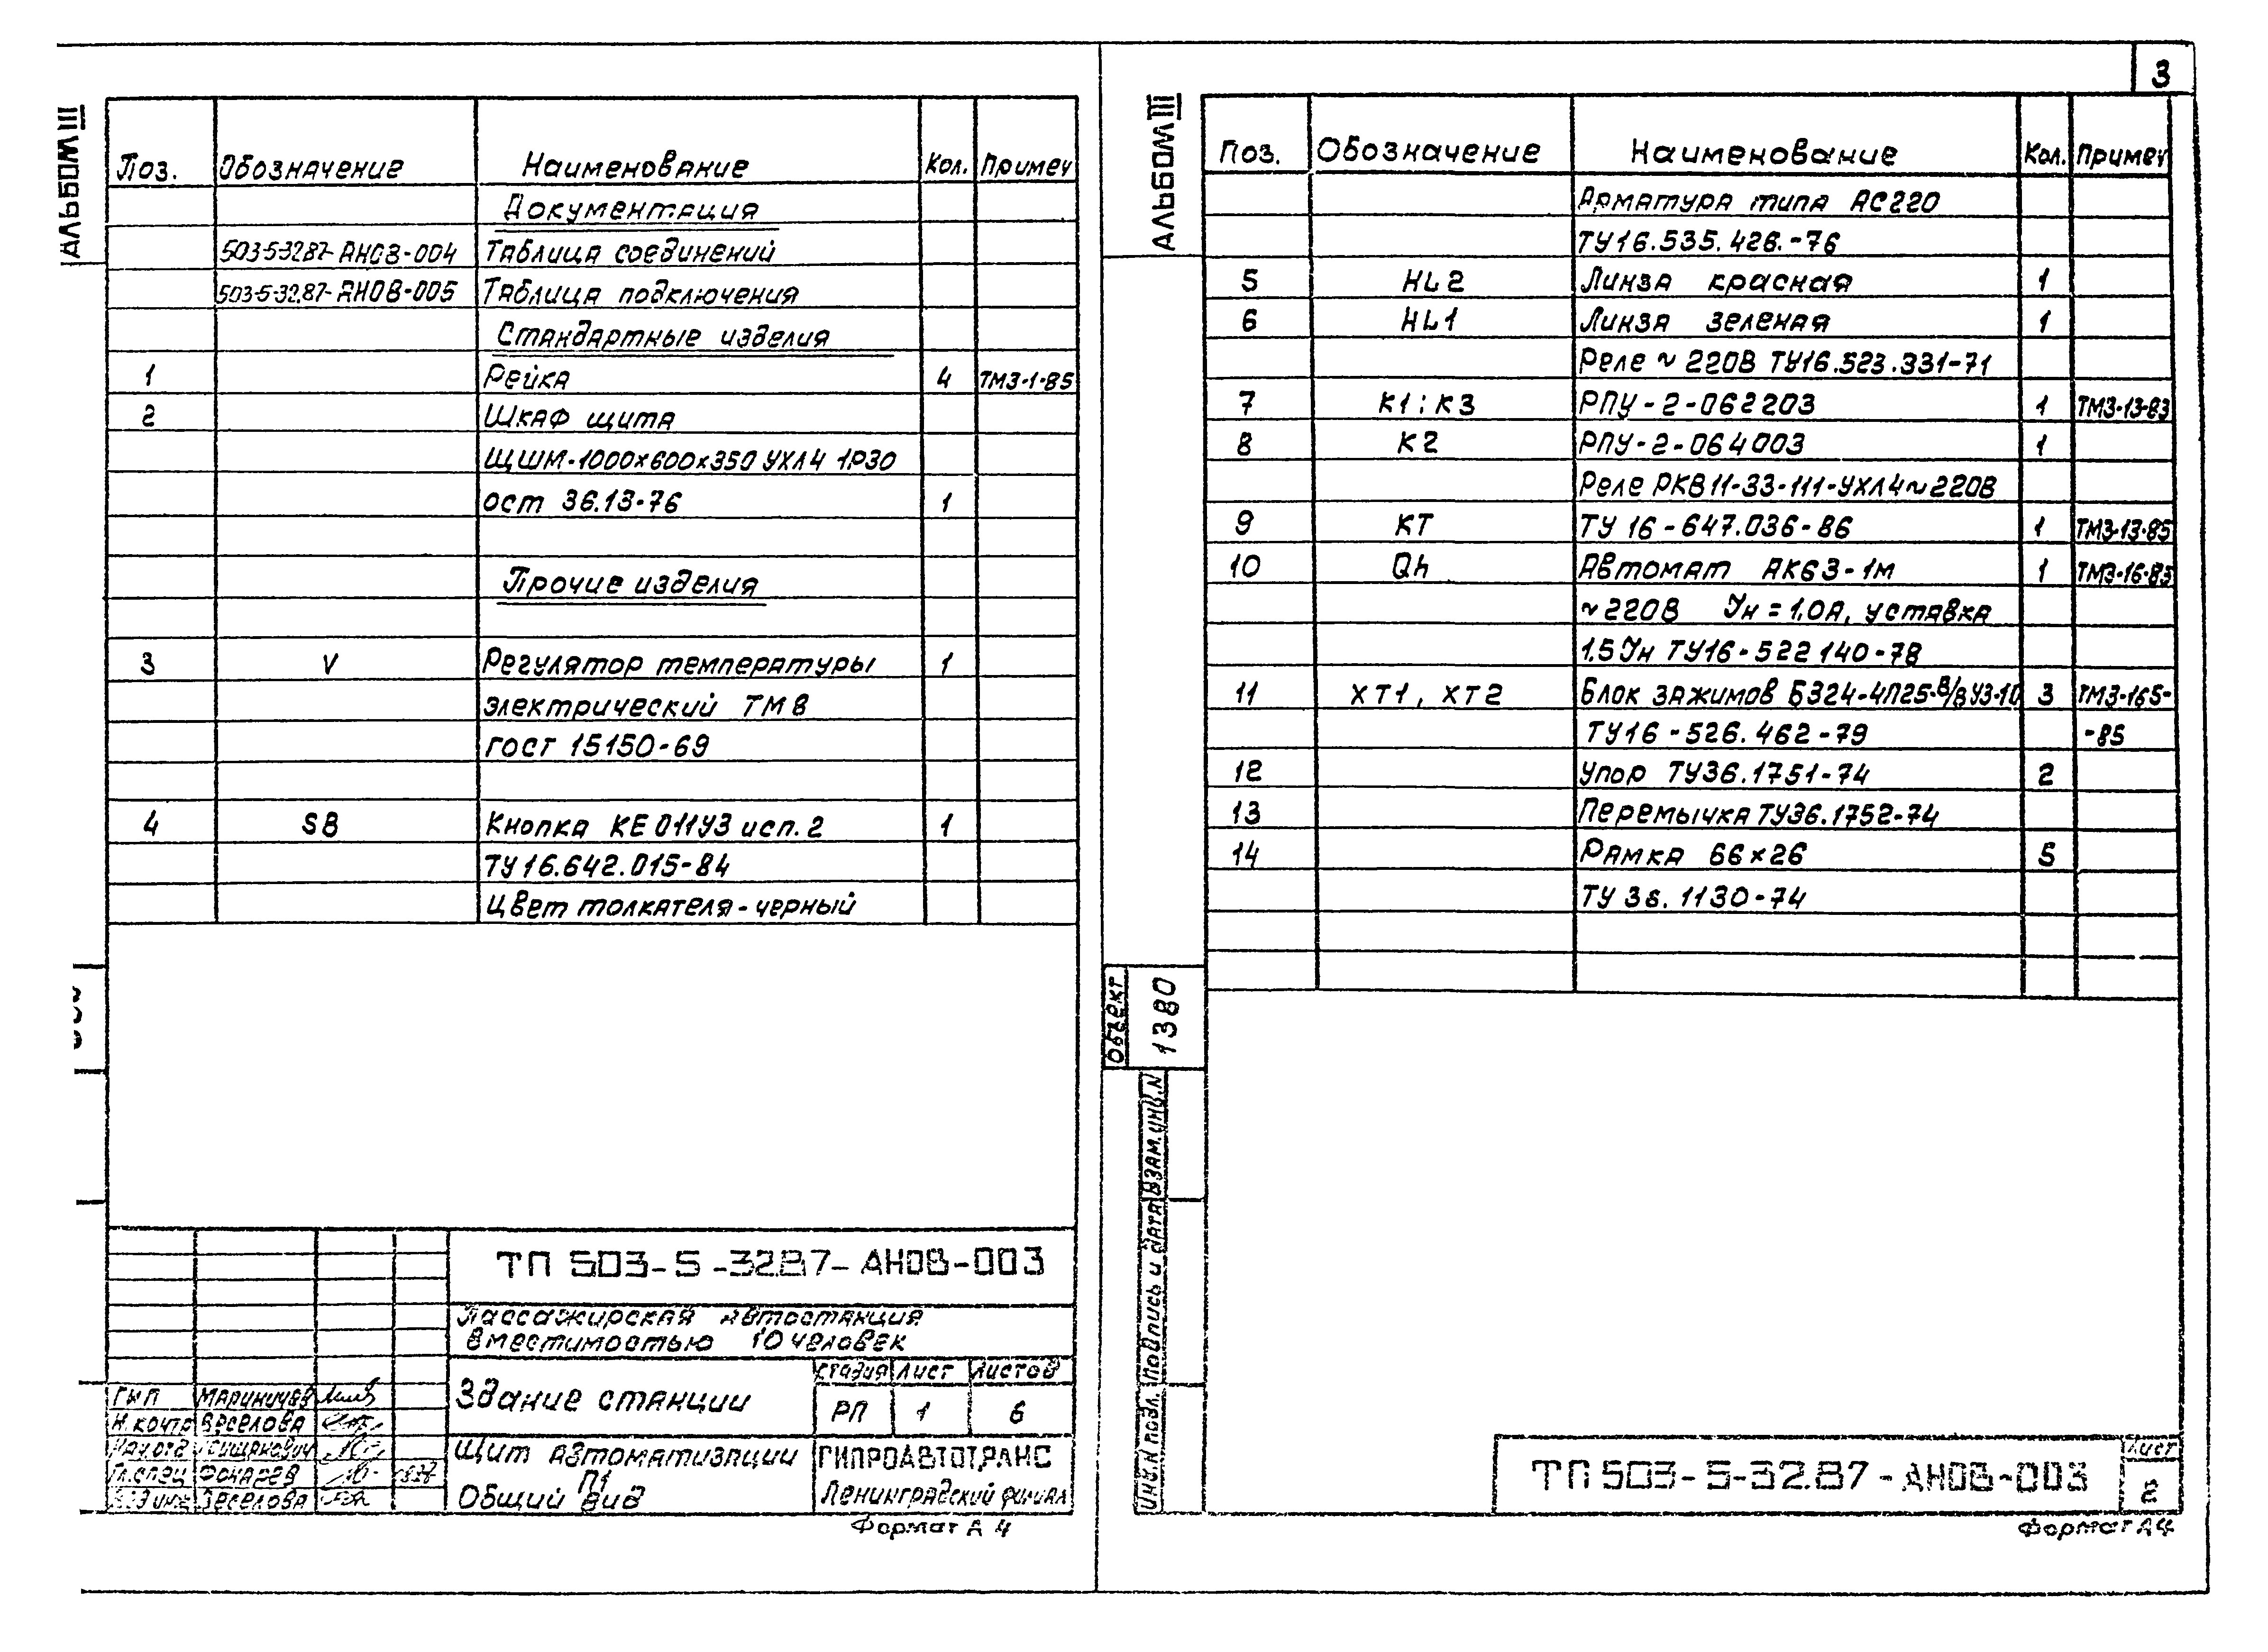 АЛЬБОМ III
Поз. Обозначение Наименование Кол. Примеч
Документация
503-5-32.87-АНОВ-004 Таблица соединений
503-5-32.87-АНОВ-005 Таблица подключения
Стандартные изделия
1 Рейка 4 ТМ3-1-85
2 Шкаф щита
ЩШМ-1000×600×350 УХЛ4 1Р30
ост 36.13-76 1
Прочие изделия
3 V Регулятор температуры 1
электрический ТМ8
гост 15150-69
4 SB Кнопка КЕ 011У3 исп. 2 1
ТУ 16.642.015-84
Цвет толкателя-черный
ТП 503-5-32.87-АНОВ-003
Пассажирская автостанция
вместимостью 10 человек
Здание станции
Стадия Лист Листов
РП 1 6
Щит автоматизации
П1
Общий вид
ГИПРОАВТОТРАНС
Ленинградский филиал
ГИП Мариничев
Н. контр Веселова
Нач. отд
Гл. спец Фокарев
Вед инж Веселова
Формат А4
3
АЛЬБОМ III
Поз. Обозначение Наименование Кол. Примеч
Арматура типа АС220
ТУ16.535.426.-76
5 HL2 Линза красная 1
6 HL1 Линза зеленая 1
Реле ~ 220В ТУ16.523.331-71
7 К1; К3 РПУ-2-062203 1 ТМ3-13-83
8 К2 РПУ-2-064003 1
Реле РКВ11-33-111-УХЛ4~220В
9 КТ ТУ 16-647.036-86 1 ТМ3-13-85
10 Qh Автомат АК63-1м 1 ТМ3-16-85
~220В Iн = 1.0А, уставка
1.5 Iн ТУ16-522 140-78
11 ХТ1, ХТ2 Блок зажимов Б324-4П25-В/ВУ3-10 3 ТМ3-165-
ТУ16-526.462-79 -85
12 Упор ТУ36.1751-74 2
13 Перемычка ТУ36.1752-74
14 Рамка 66×26 5
ТУ 36.1130-74
Объект 1380
Взам. инв. N
Подпись и дата
Инв. N подл.
ТП 503-5-32.87-АНОВ-003
Лист
2
Формат А4